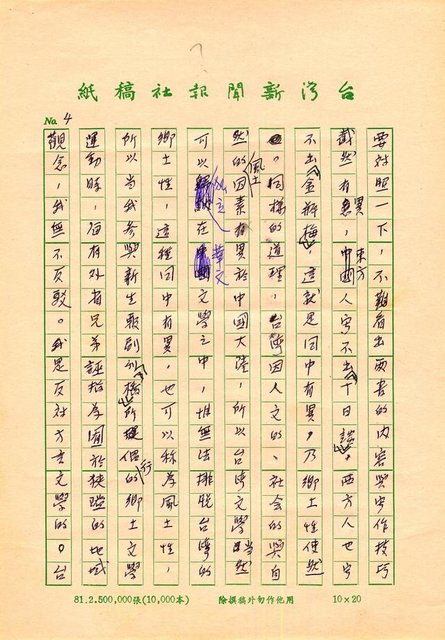 台灣新聞報社稿紙
No 4
要對照一下，不難看出兩書的內容與寫作技巧
截然有異，東方人寫不出「十日談」，西方人也寫
不出「金瓶梅」，這就是同中有異，乃鄉土性使然
。同樣的道理，台灣因人文的、社會的與自
然的風土因素有異於中國大陸，所以台灣文學當然
可以獨立在華文文學之中，惟無法排脫台灣的
鄉土性，這種同中有異，也可以稱為風土性，
所以當我參與新生報副刊「橋」所推行的鄉土文學
運動時，有外省兄弟誣指為囿於狹隘的地域
觀念，我無不反駁。我是反方言文學的。台
81.2.500,000張(10,000本) 除撰稿外勿作他用 10×20